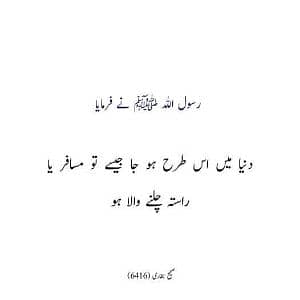 رسول اللہ ﷺ نے فرمایا
دنیا میں اس طرح ہو جا جیسے تو مسافر یا
راستہ چلنے والا ہو
صحیح بخاری (6416)